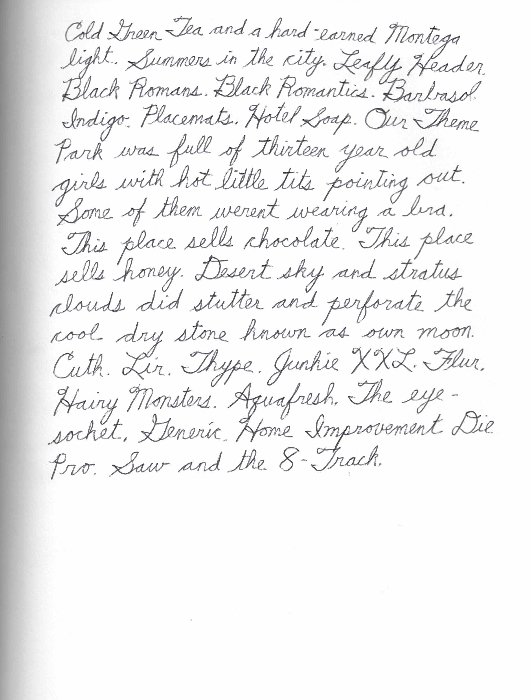 Cold Green Tea and a hard-earned Montega
light. Summers in the city. Leafly Header.
Black Romans. Black Romantics. Barbasol
Indigo. Placemats. Hotel Soap.
[omitted]
Some of them werent wearing a bra.
This place sells chocolate. This place
sells honey. Desert sky and stratus
clouds did stutter and perforate the
cool dry stone known as own moon.
Cuth. Lir. Thype. Junkie XXL. Flur.
Hairy Monsters. Aquafresh. The eye-
socket, Generic Home Improvement Die
Pro. Saw and the 8-Track.